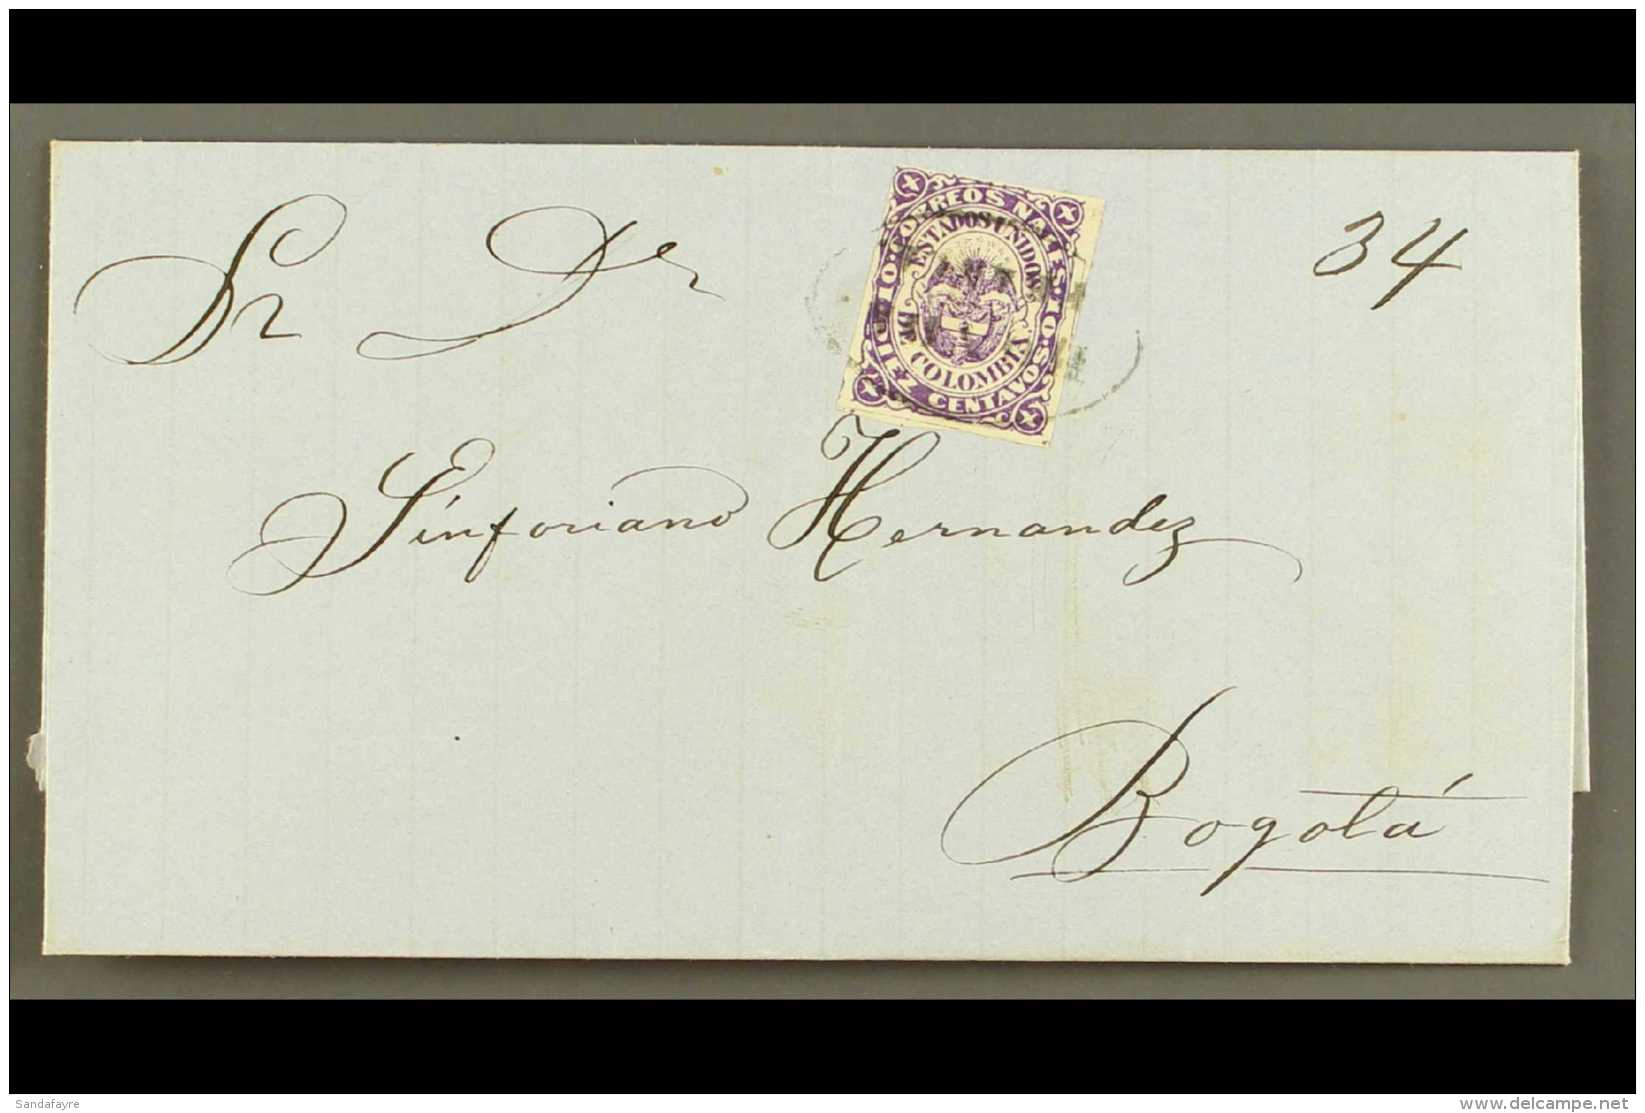 Sr Dr
34
CORREOS NALES.
ESTADOS UNIDOS
DE COLOMBIA
10 10
DIEZ CENTAVOS.
Sinforiano Hernandez
Bogotá
Sandafayre
www.delcampe.net